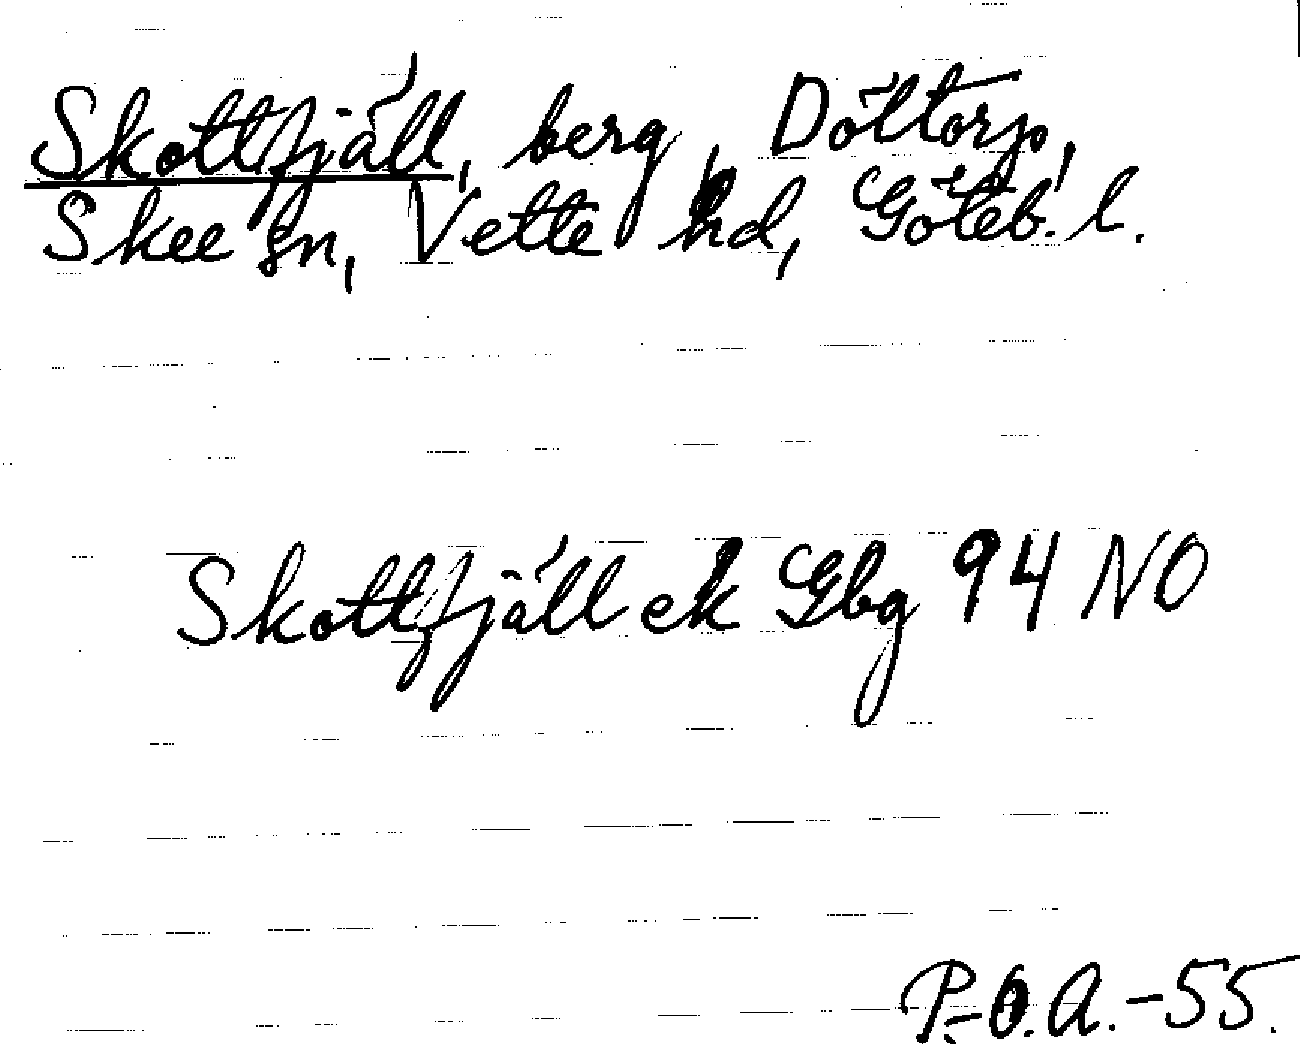 Skottfjäll, berg, Döltorp,
Skee sn, Vette hd, Göteb. l.
Skottfjäll ek Gbg 94 NO
P.-O.A.-55.